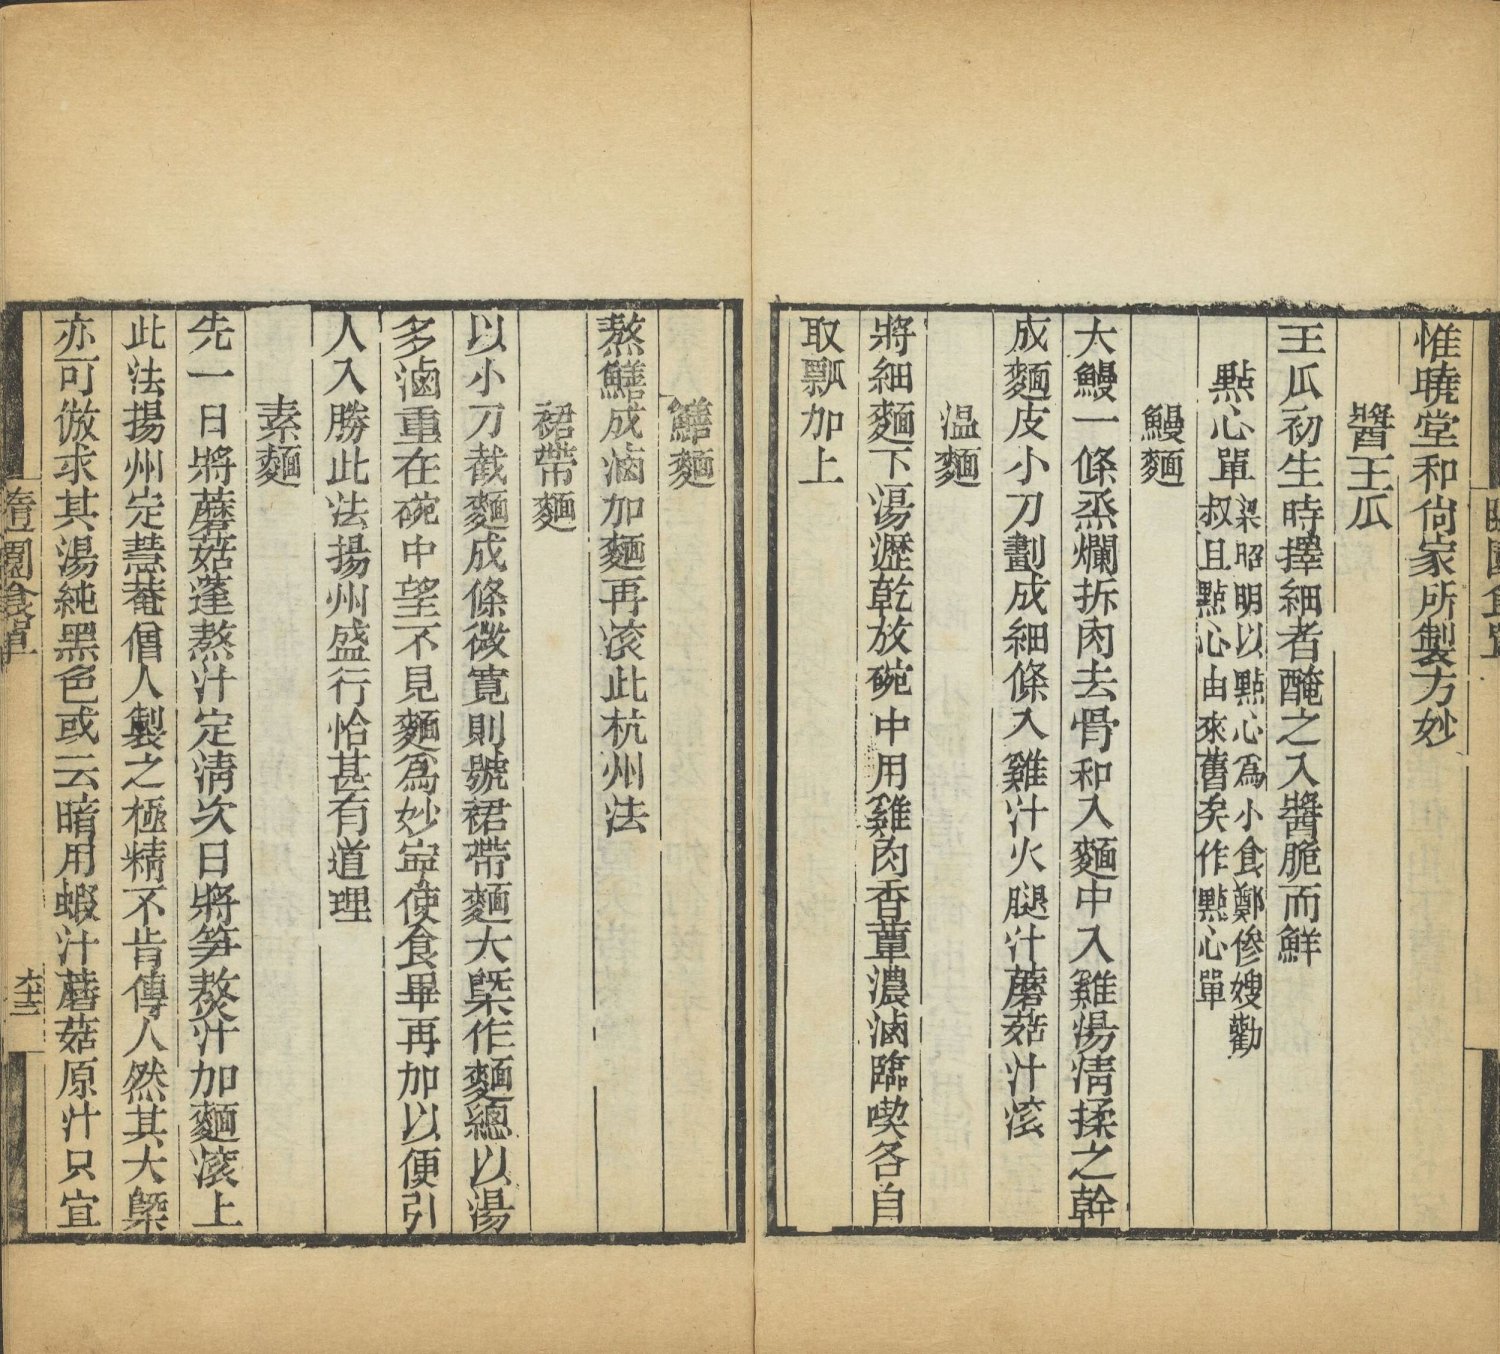 惟曉堂和尙家所製方妙
醬王瓜
王瓜初生時擇細者醃之入醬脆而鮮
點心單
梁昭明以點心爲小食鄭傪嫂勸
叔且點心由來舊矣作點心單
鰻麵
大鰻一條蒸爛拆肉去骨和入麵中入雞湯淸揉之幹
成麵皮小刀劃成細條入雞汁火腿汁蘑菇汁滚
温麵
將細麵下湯瀝乾放碗中用雞肉香蕈濃滷臨喫各自
取瓢加上
鱔麵
熬鱔成滷加麵再滚此杭州法
裙帶麵
以小刀截麵成條微寬則號裙帶麵大槩作麵總以湯
多滷重在碗中望不見麵爲妙寧使食畢再加以便引
人入勝此法揚州盛行恰甚有道理
素麵
先一日將蘑菇蓬熬汁定淸次日將笋熬汁加麵滚上
此法揚州定慧菴僧人製之極精不肯傳人然其大槩
亦可倣求其湯純黑色或云暗用蝦汁蘑菇原汁只宜
隨園食單
六十三